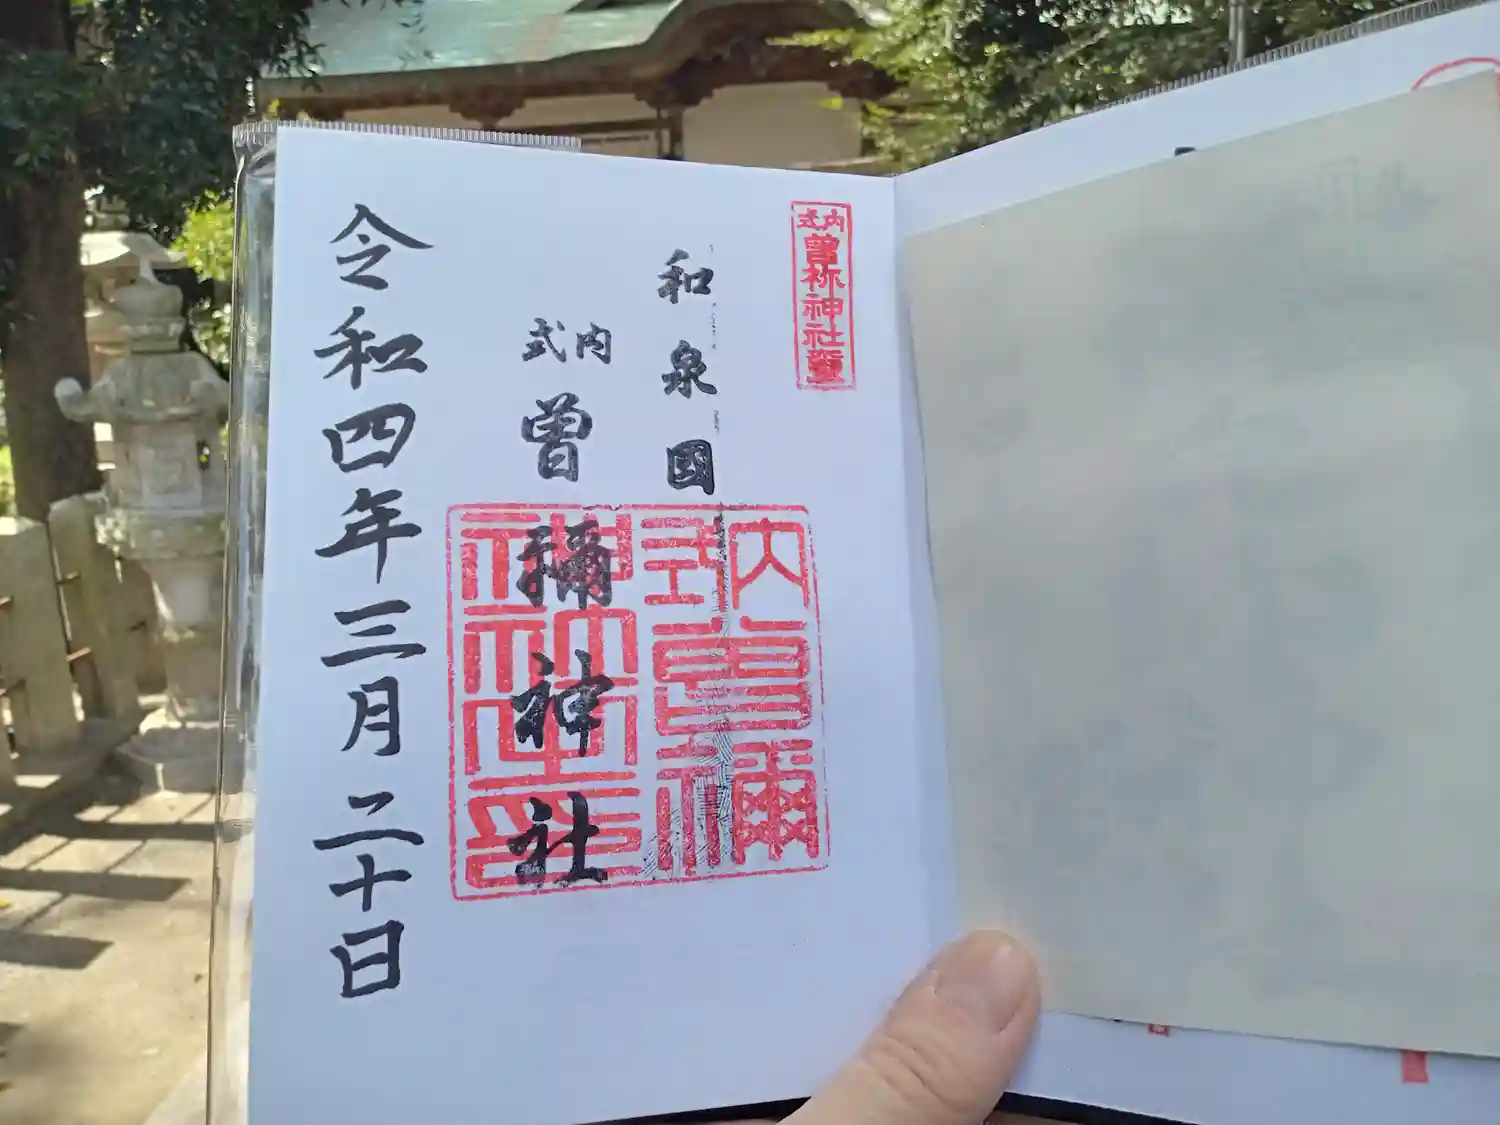 式内曽祢神社璽
和泉國
式内
曽彌神社
内式曽彌神社之印
令和四年三月二十日